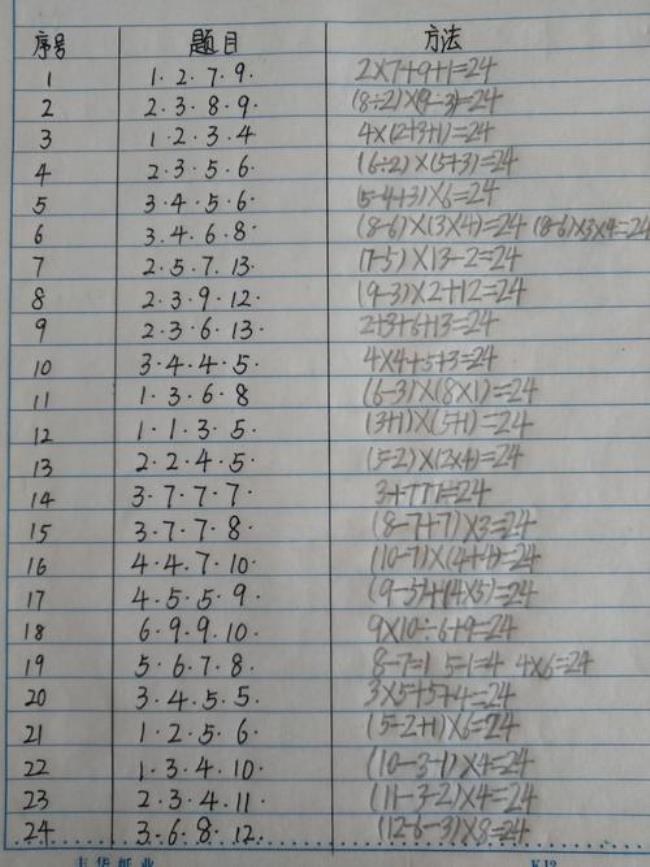 序号 题目 方法
1 1·2·7·9· 2×7+9+1=24
2 2·3·8·9· (8÷2)×(9-3)=24
3 1·2·3·4 4×(2+3+1)=24
4 2·3·5·6· (6÷2)×(5+3)=24
5 3·4·5·6· (5-4+3)×6=24
6 3.4.6.8· (8-6)×(3×4)=24 (8-6)×3×4=24
7 2·5·7.13· (7-5)×13-2=24
8 2·3·9·12· (9-3)×2+12=24
9 2·3·6·13· 2+3+6+13=24
10 3·4·4·5· 4×4+5+3=24
11 1·3·6·8 (6-3)×(8×1)=24
12 1·1·3·5· (3+1)×(5+1)=24
13 2·2·4·5· (5-2)×(2×4)=24
14 3·7·7·7· 3+777=24
15 3·7·7·8· (8-7+7)×3=24
16 4·4.7·10· (10-7)×(4+4)=24
17 4.5.5.9· (9-5)+(4×5)=24
18 6·9.9.10· 9×10÷6+9=24
19 5·6.7.8. 8-7=1 5-1=4 4×6=24
20 3.4.5.5. 3×5+5+4=24
21 1·2·5·6· (5-2+1)×6=24
22 1·3.4.10· (10-3-1)×4=24
23 2·3·4.11· (11-3-2)×4=24
24 3·6·8·12· (12-6-3)×8=24
K12